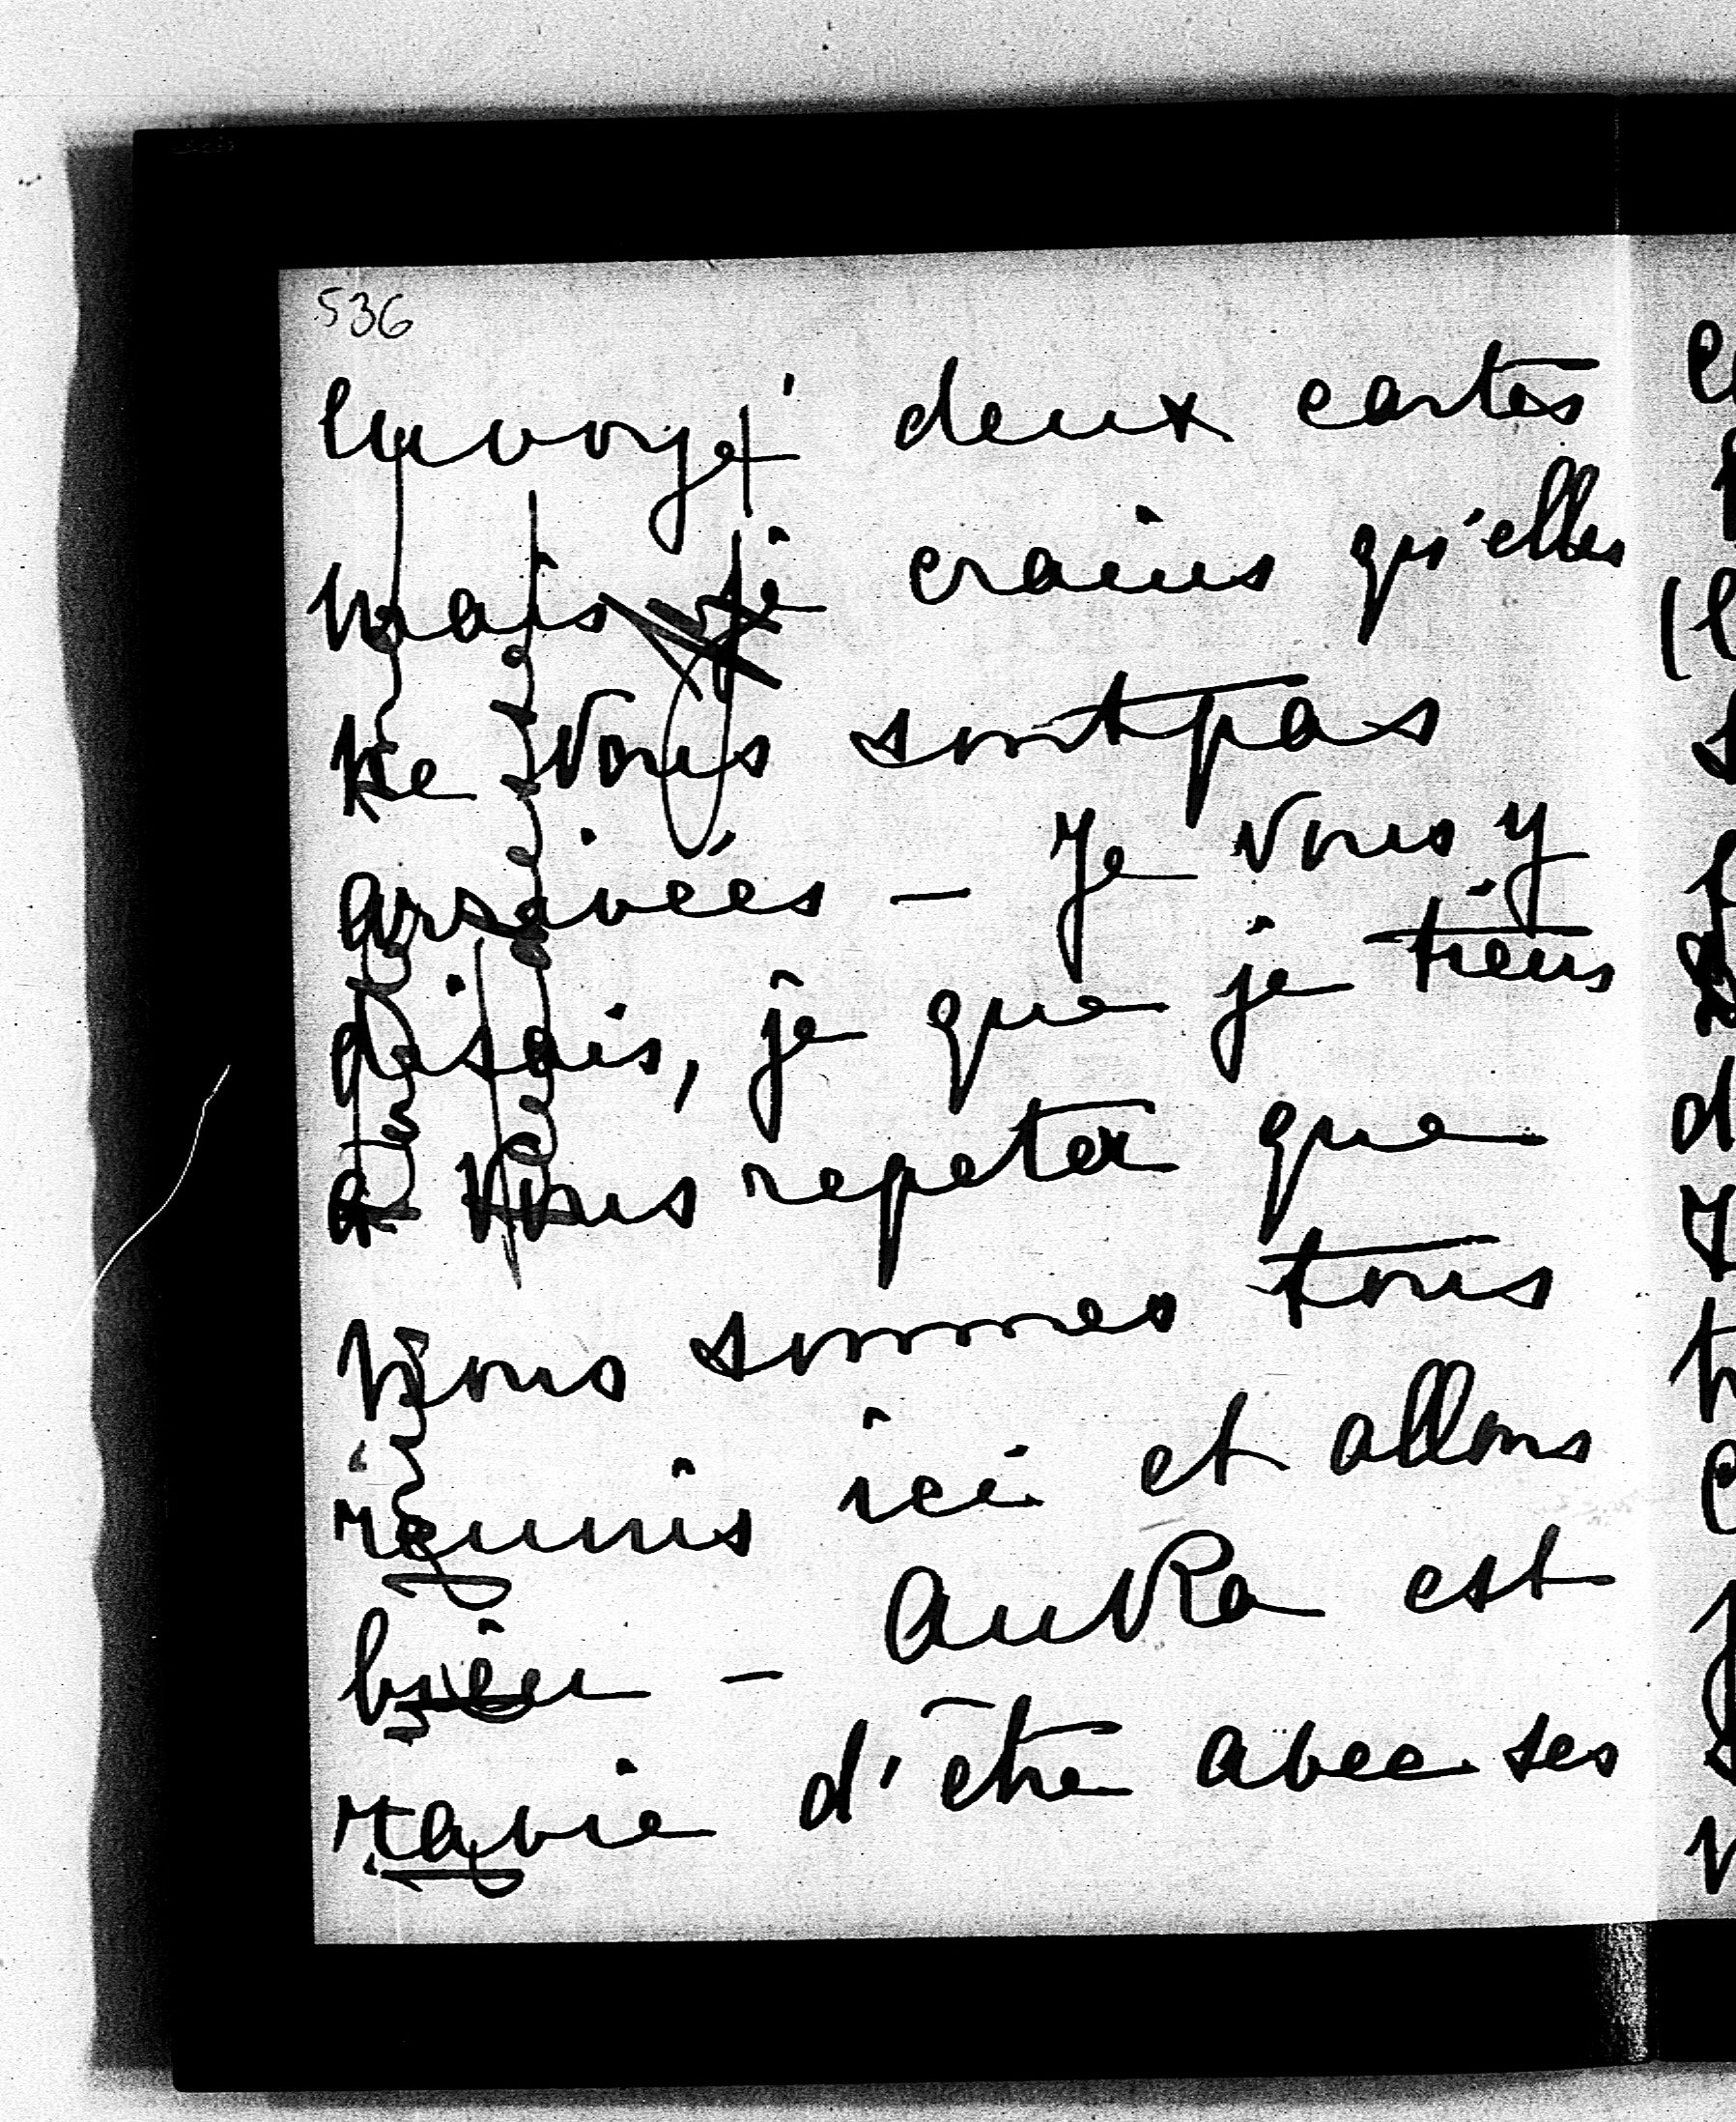 536
envoyé deux cartes
mais je crains qu'elles
ne vous sont pas
arrivées — Je vous y
disais, je que je tiens
à vous repeter que
nous sommes tous
réunis ici et allons
bien — est
ravie d'être avec ses